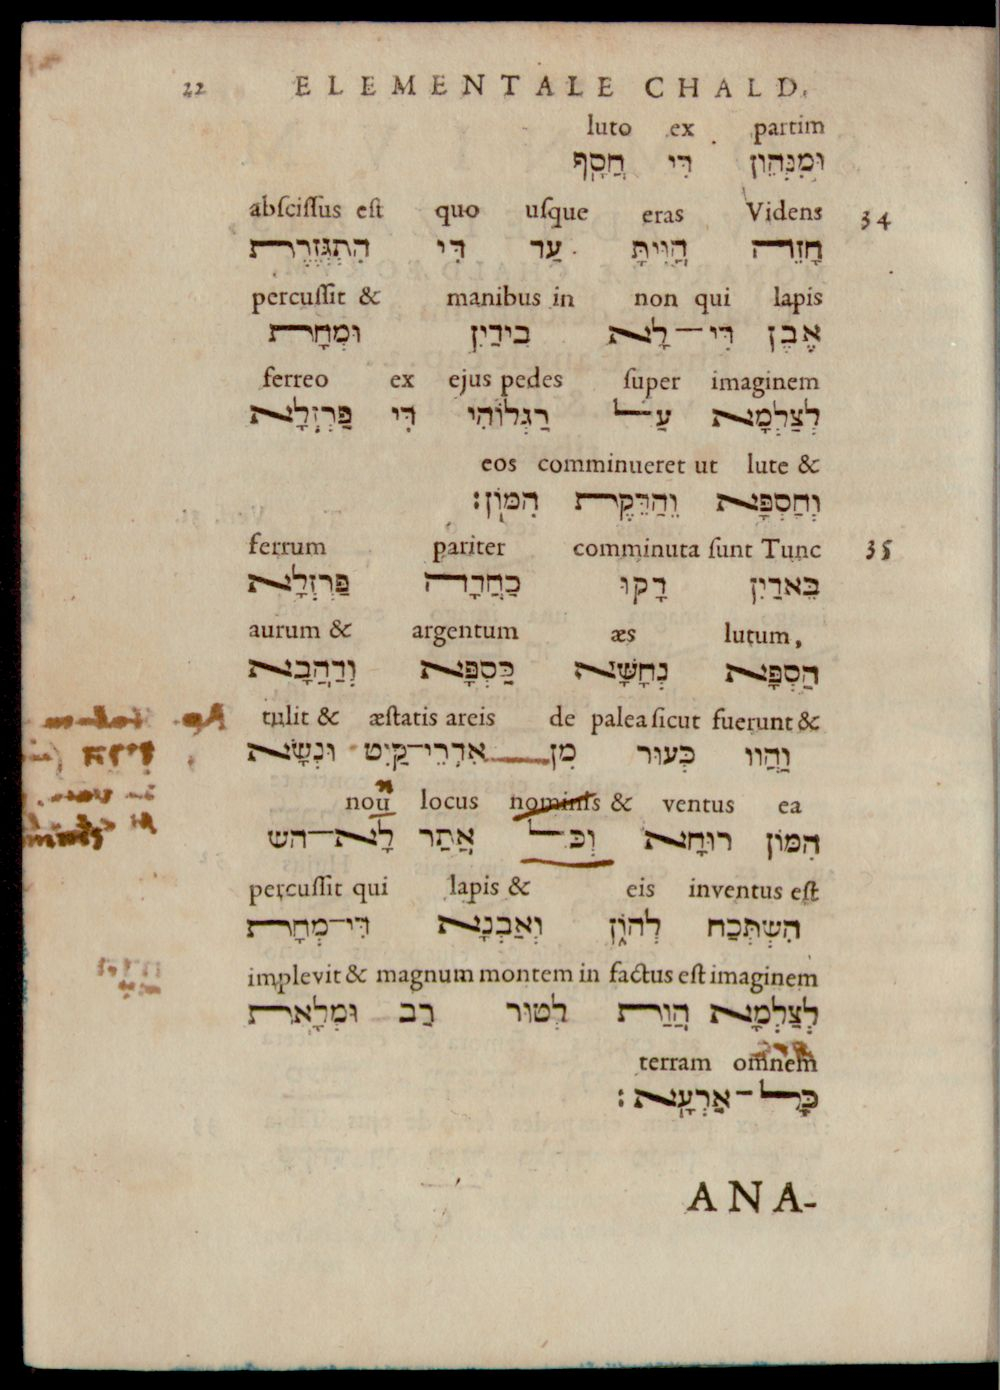 22 ELEMENTALE CHALD.
luto ex partim
וּמִנְּהֵון דִּי חֲסָף
abſciſſus eſt quo uſque eras Videns 34
חָזֵה הֲוַיְתָּ עַד דִּי הִתְגְּזֶרֶת
percuſſit & manibus in non qui lapis
אֶבֶן דִּי־לָא בִידַיִן וּמְחָת
ferreo ex ejus pedes ſuper imaginem
לְצַלְמָא עַל רַגְלוֹהִי דִּי פַּרְזְלָא
eos comminueret ut lute &
וְחַסְפָּא וְהַדֵּקֶת הִמּוֹן׃
ferrum pariter comminuta ſunt Tunc 35
בֵּאדַיִן דָּקוּ כַּחֲדָה פַּרְזְלָא
aurum & argentum æs lutum,
הַסְפָּא נְחָשָׁא כַּסְפָּא וְדַהֲבָא
tulit & æſtatis areis de palea ſicut fuerunt &
וַהֲווֹ כְּעוּר מִן אִדְּרֵי־קַיִט וּנְשָׂא
nou locus nominis & ventus ea
הִמּוֹן רוּחָא וְכָל אֲתַר לָא־הש
percuſſit qui lapis & eis inventus eſt
הִשְׁתְּכַח לְהוֹן וְאַבְנָא דִּי־מְחָת
implevit & magnum montem in factus eſt imaginem
לְצַלְמָא הֲוָת לְטוּר רַב וּמְלָאת
terram omnem
כָּל־אַרְעָא׃
ANA-